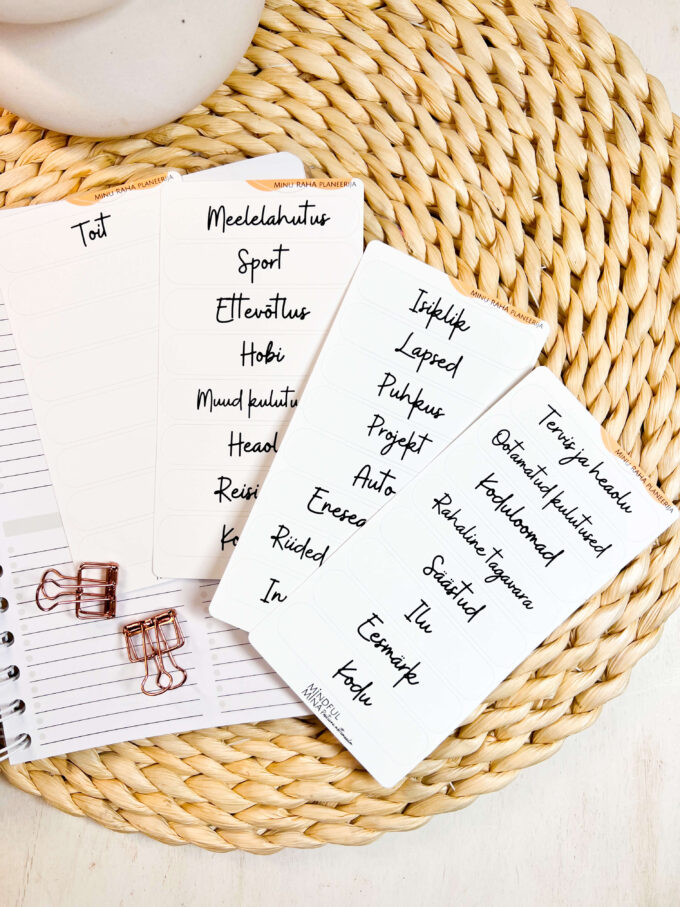 MINU RAHA PLANEERIJA
Toit
MINU RAHA PLANEERIJA
Meelelahutus
Sport
Ettevõtlus
Hobi
Muud kulutu
Heaol
Reisi
MINU RAHA PLANEERIJA
Isiklik
Lapsed
Puhkus
Projekt
Auto
Enesea
Riided
In
MINU RAHA PLANEERIJA
Tervis ja heaolu
Ootamatud kulutused
Koduloomad
Rahaline tagavara
Säästud
Ilu
Eesmärk
Kodu
MINDFUL
MINA